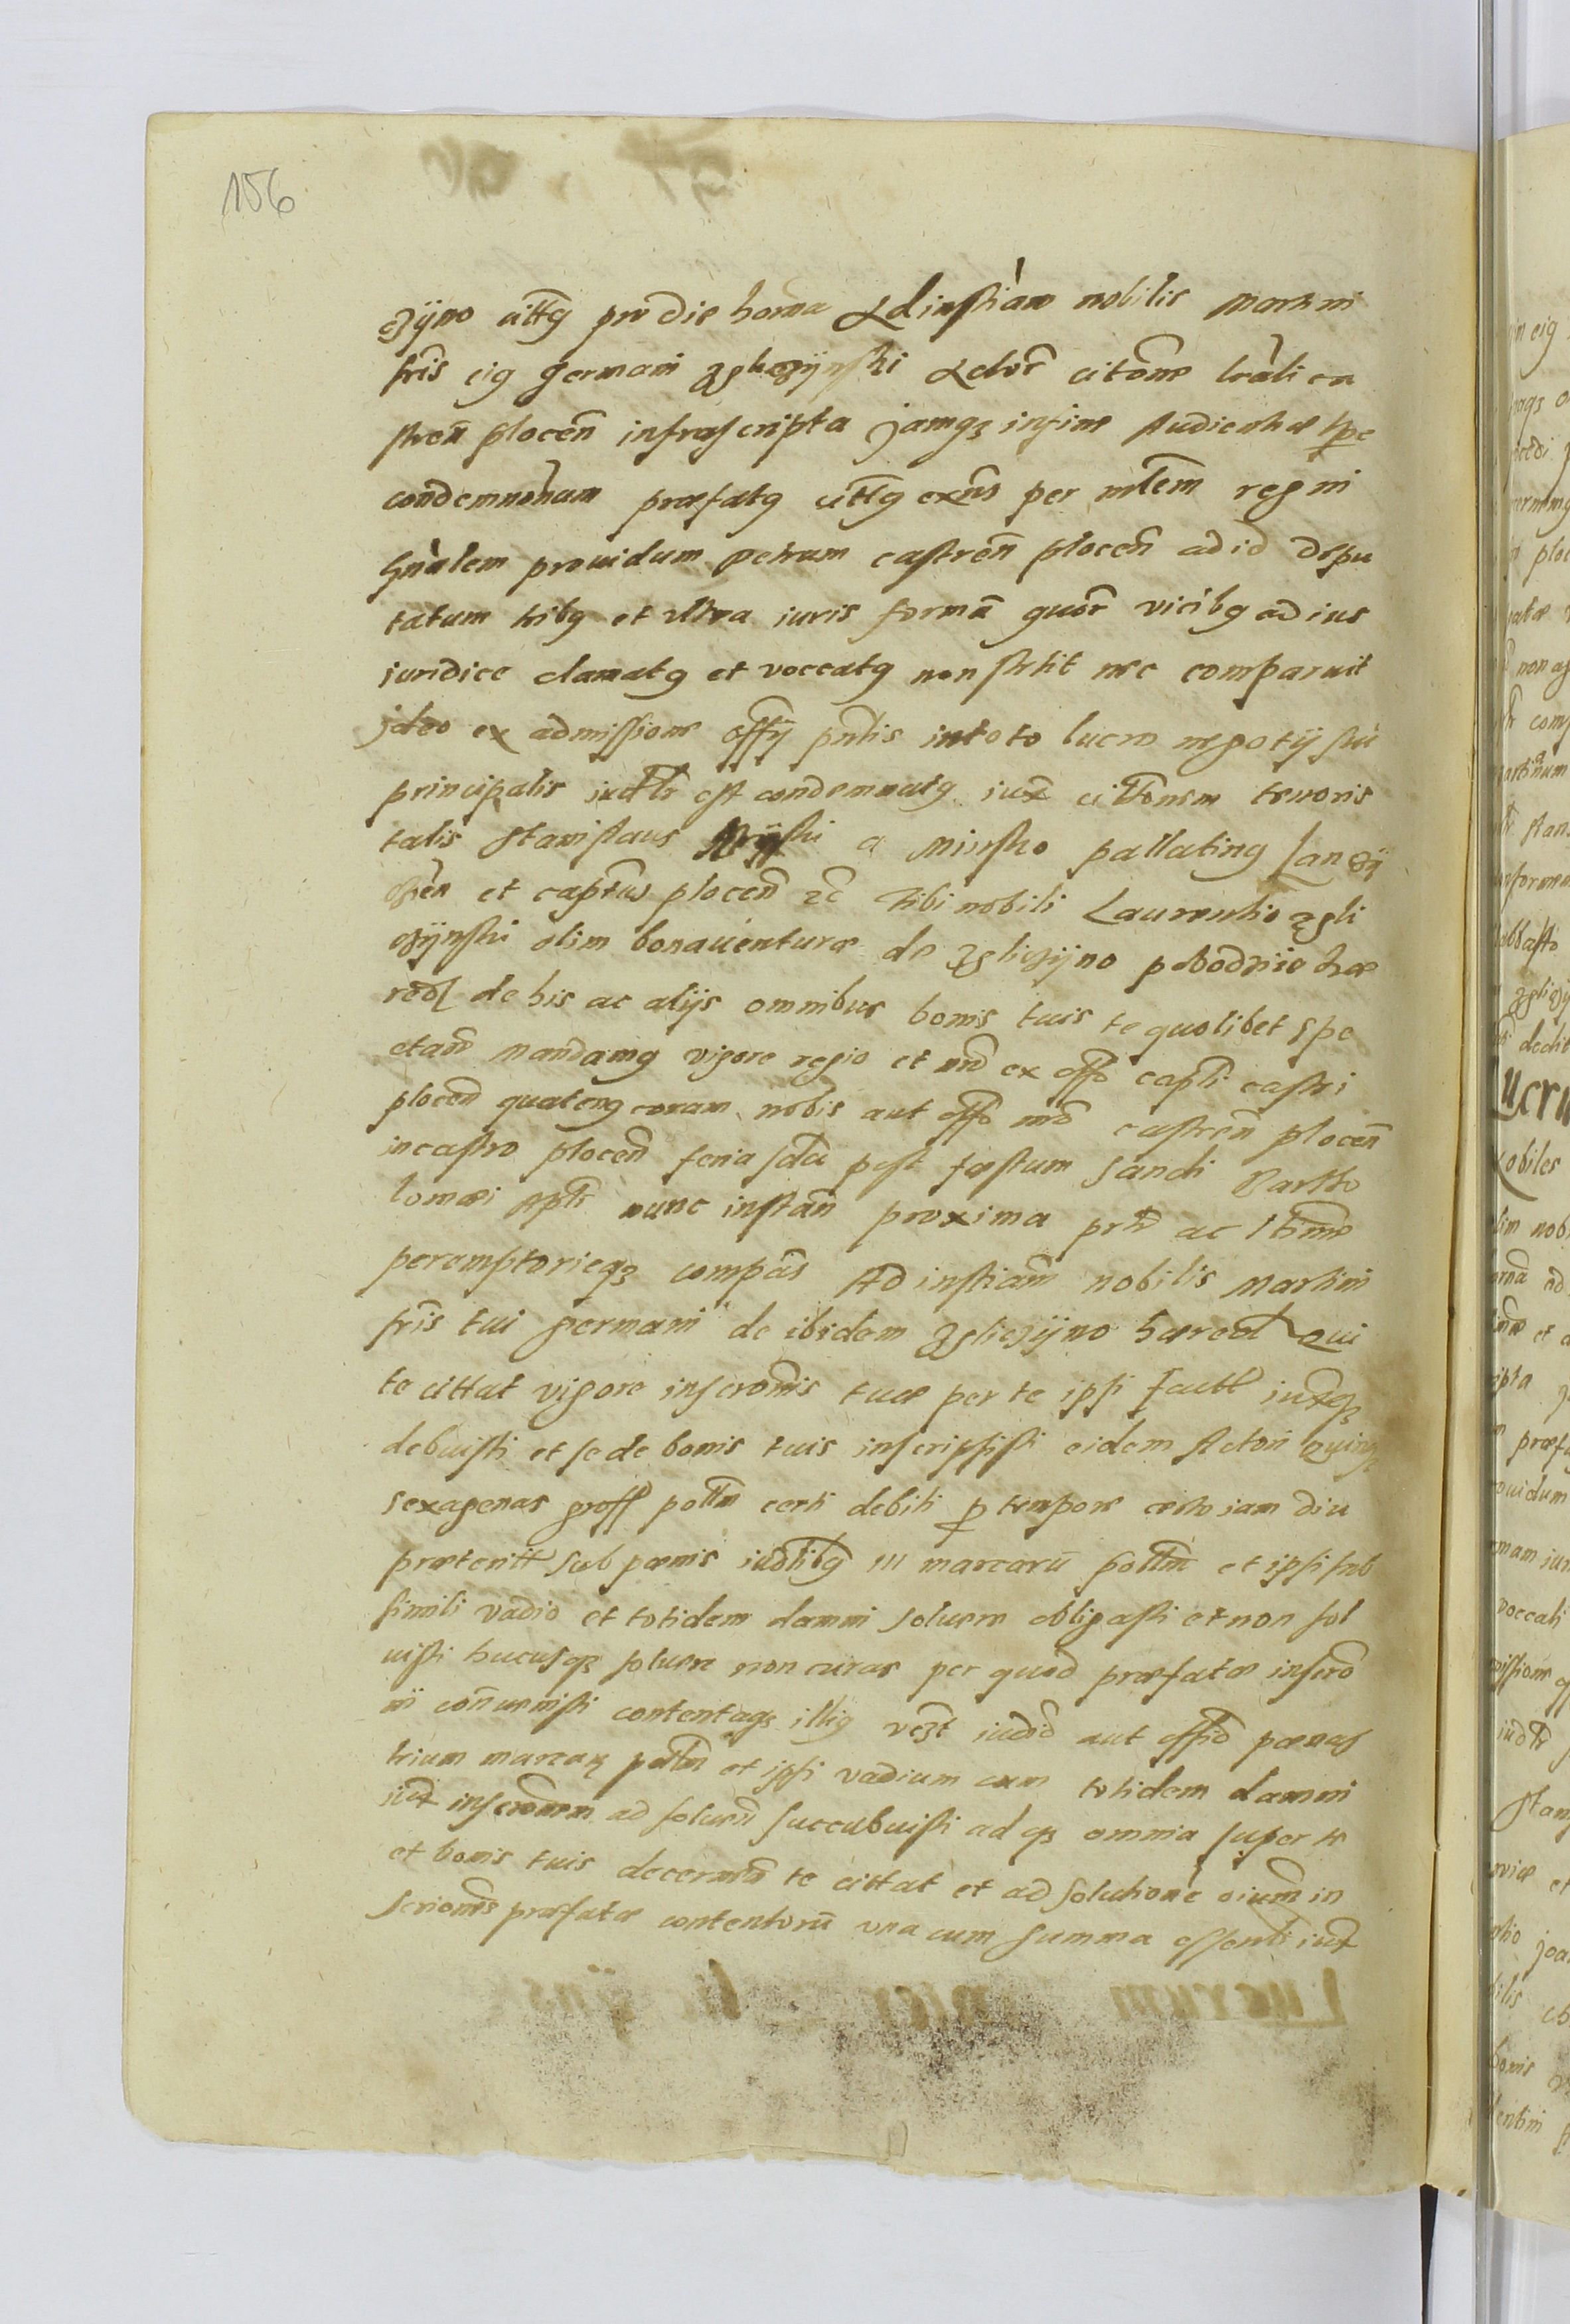 156
czÿno citt9 pro die horna Ad instiam nobilis Martini
fris ei9 germani zglieczÿnski Actor citone lrali ca
stren plocen infrascripta jamq3 in fine Audientiæ
condemnonum præfat9 citt9 exns per mlem regni
gnalem prouidum petrum castren plocen ad id depu
tatum trib9 et vltra iuris forma quor vicib9 ad ius
juridice clamat9 et voccat9 non stetit nec comparuit
jdeo ex admissione offÿ pntis in toto lucro negotij sui
principalis iudlr est condemnat9 iux cittonem tenoris
talis Stanislaus a Minsko pallatin9 Lanczÿ
czien et capteus plocen zc Tibi nobili Laurentio zgli
czÿnski olim bonauenturæ de zgliczÿno hæ
red de his ac alÿs omnibus bonis tuis te quolibet spe
ctan Mandam9 vigore regio et nro ex offo capli castri
plocen quaten9 coram nobis aut offo nro castren plocen
in castro plocen feria scda post festum Sancti Bartho
lomæi Apli nunc instan proxima prtr ac ltime
peremptorieq3 compas Ad instiam nobilis Martini
fris tui germani de ibidem zglieczÿno hæred Qui
te cittat vigore inscronis tuæ per te ipsi fact iuxta q3
debuisti et se de bonis tuis inscripsisti eidem Actori
sexagenas gross polln certi debiti p tempore certo iam diu
præteritt sub pœnis iudlib9 III marcaru pollm et ipsi sub
simili vadio et totidem damni soluere obligasti et non sol
uisti hucusq3 soluere non curas per quod præfatæ inscro
ni contrauenisti contentaq3 illi9 iudo aut offo pœnas
trium marcar polln et ipsi vadium cum totidem damni
iux inscronem ad soluen succubuisti ad q3 omnia super te
et bonis tuis decernen te cittat et ad solutione oium in
scrionis præfatæ contentoru vna cum summa essenti iux